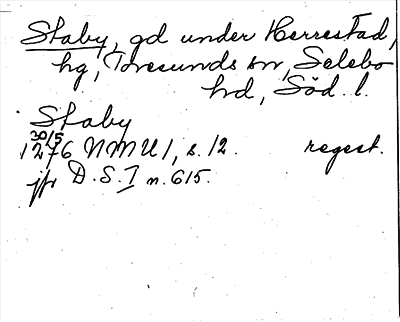 Staby, gd under Herrestad,
hg, Toresunds sn, Selebo
hd, Söd. l.
Staby
30/5
1276 NMU 1, s. 12. regest.
jfr D. S. I n. 615.